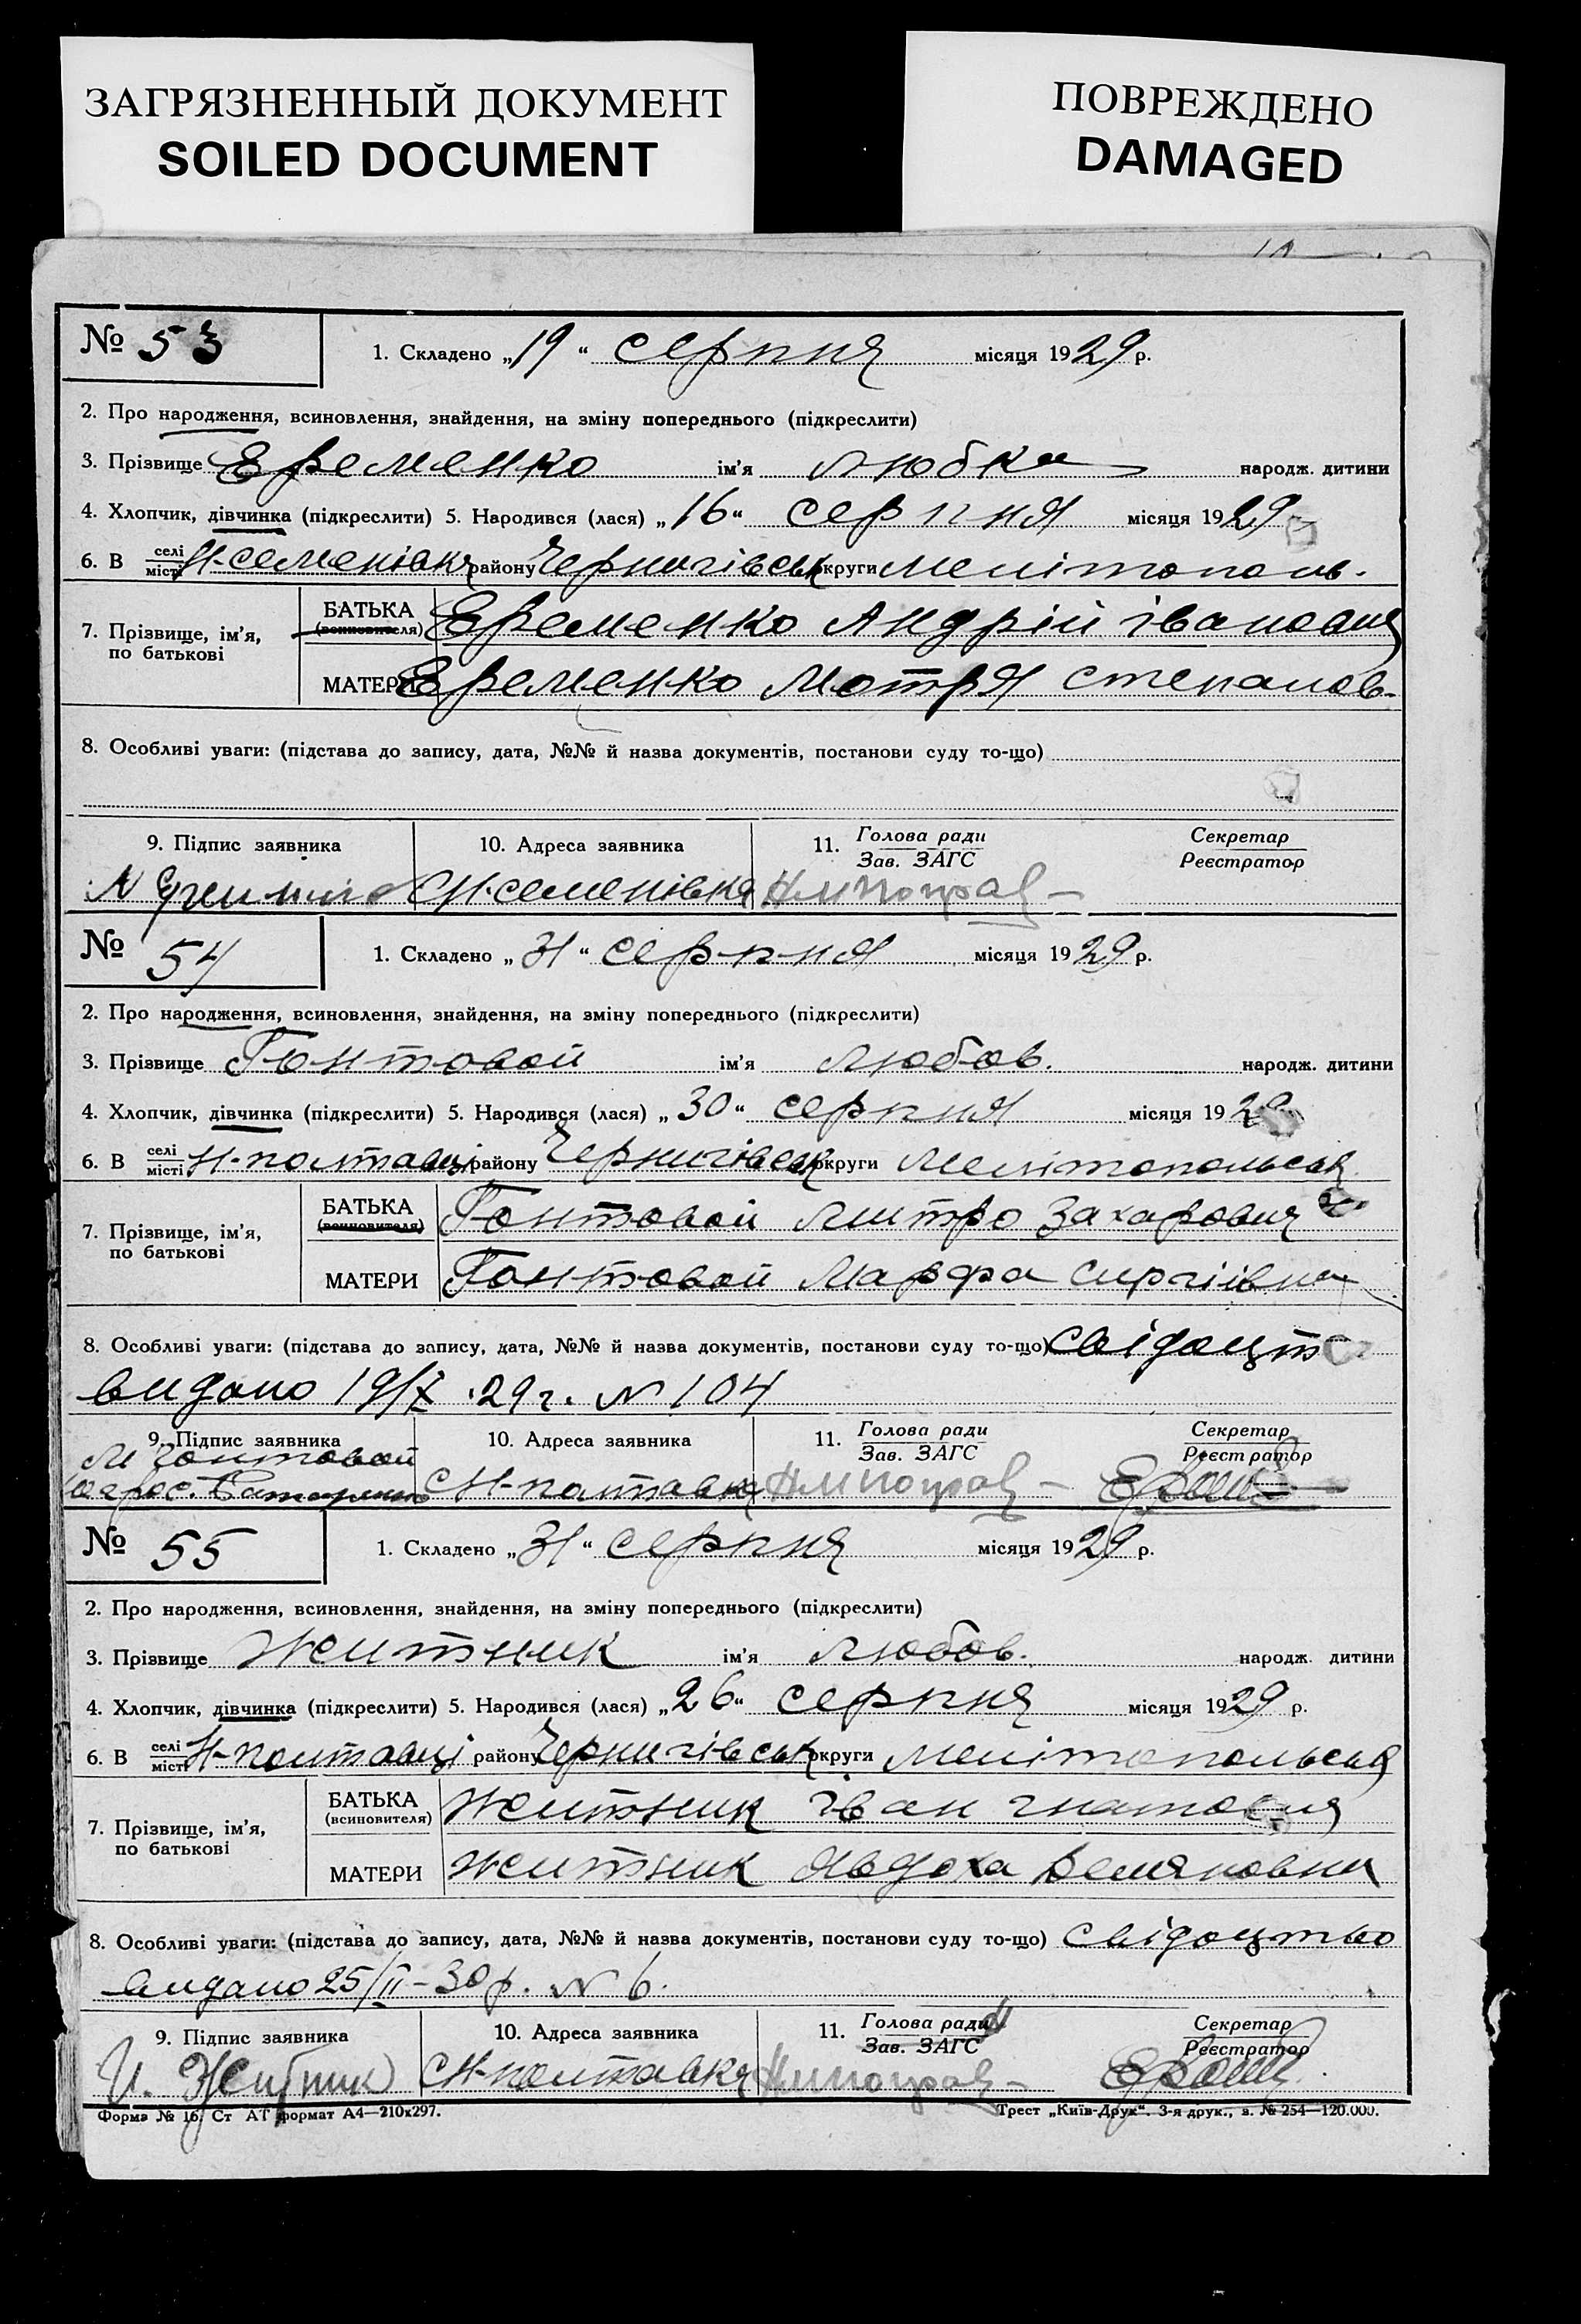 ЗАГРЯЗНЕННЫЙ ДОКУМЕНТ
SOILED DOCUMENT
ПОВРЕЖДЕНО
DAMAGED
№ 53 1. Складено „19“ серпня місяця 1929 р.
2. Про народження, всиновлення, знайдення, на зміну попереднього (підкреслити)
3. Прізвище Еременко ім'я Любка народж. дитини
4. Хлопчик, дівчинка (підкреслити) 5. Народився (лася) „16“ серпня місяця 1929
6. В селі місті Н-семенівка району Чернигівськ округи Мелітополь.
7. Прізвище, ім'я, по батькові
БАТЬКА (всиновителя) Еременко Андрій івanович
МАТЕРИ Еременко Мотря степанов.
8. Особливі уваги: (підстава до запису, дата, №№ й назва документів, постанови суду то-що)
9. Підпис заявника 10. Адреса заявника 11. Голова ради Зав. ЗАГС Секретар Реєстратор
с Н-семенівка
№ 54 1. Складено „31“ серпня місяця 1929 р.
2. Про народження, всиновлення, знайдення, на зміну попереднього (підкреслити)
3. Прізвище Гонтовой ім'я Любов. народж. дитини
4. Хлопчик, дівчинка (підкреслити) 5. Народився (лася) „30“ серпня місяця 1929
6. В селі місті Н-полтавці району Чернигівськ округи Мелітопольськ
7. Прізвище, ім'я, по батькові
БАТЬКА (всиновителя) Гонтовой Митро Захарович
МАТЕРИ Гонтовой Марфа сиргіівна
8. Особливі уваги: (підстава до запису, дата, №№ й назва документів, постанови суду то-що) свідоцт
видано 19/X .29 г. N 104
9. Підпис заявника 10. Адреса заявника 11. Голова ради Зав. ЗАГС Секретар Реєстратор
М Гонтовой
с Н-полтавка
№ 55 1. Складено „31“ серпня місяця 1929 р.
2. Про народження, всиновлення, знайдення, на зміну попереднього (підкреслити)
3. Прізвище Житник ім'я Любов. народж. дитини
4. Хлопчик, дівчинка (підкреслити) 5. Народився (лася) „26“ серпня місяця 1929 р.
6. В селі місті Н-полтавці району Чернигівськ округи Мелітопольськ
7. Прізвище, ім'я, по батькові
БАТЬКА (всиновителя) Житник іван гнатович
МАТЕРИ Житник Явдоха Демяновни
8. Особливі уваги: (підстава до запису, дата, №№ й назва документів, постанови суду то-що) свідоцтво
видано 25/II-30 р. N 6.
9. Підпис заявника 10. Адреса заявника 11. Голова ради Зав. ЗАГС Секретар Реєстратор
И. Житник с Н-полтавка
Форма № 16. Ст АТ формат А4—210х297. Трест „Київ-Друк“. 3-я друк., з. № 254—120.000.